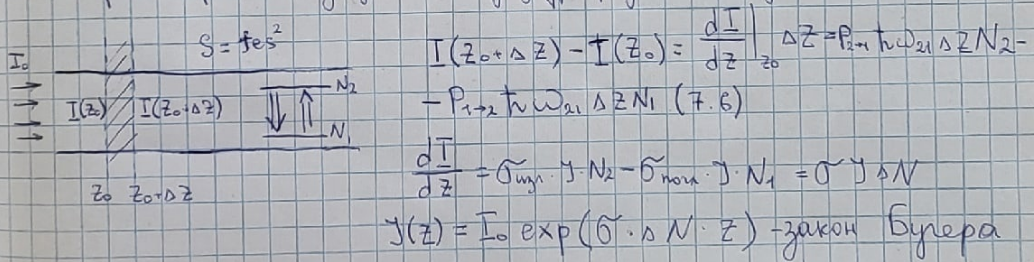 S = 1 es²
I₀
I(z₀) I(z₀+Δz)
N₂
N₁
z₀ z₀+Δz
I(z₀+Δz) - I(z₀) = dI/dz|z₀ Δz = P₂→₁ ħω₂₁ Δz N₂ -
- P₁→₂ ħω₂₁ Δz N₁ (7.6)
dI/dz = σизл · J · N₂ - σпогл · J · N₁ = σ J ΔN
J(z) = I₀ exp(σ · ΔN · z) - закон Бугера